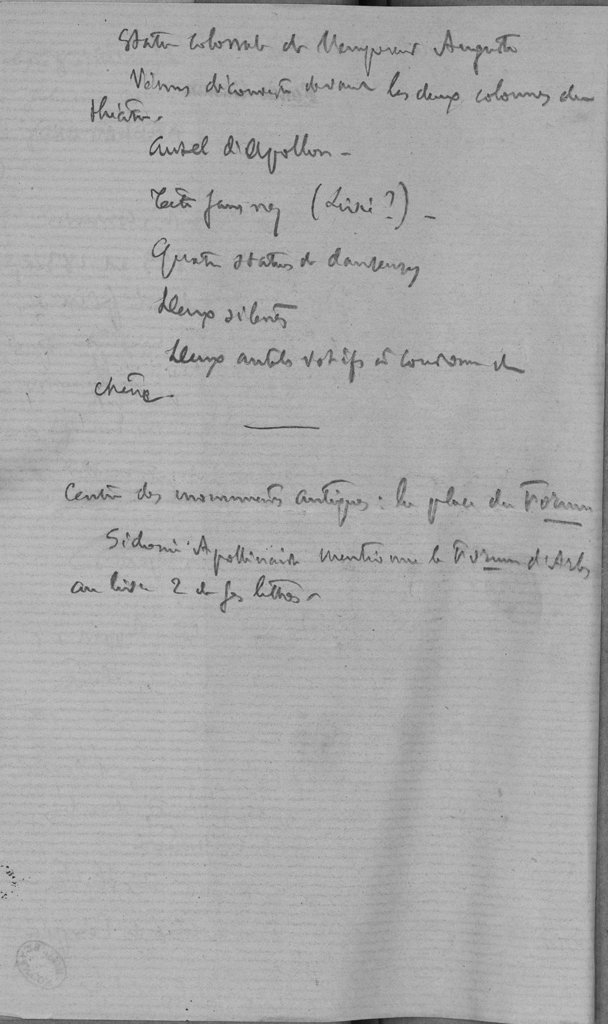 Statue colossale de l'empereur Auguste
Vénus découverte devant les deux colonnes du
théâtre.
Autel d'Apollon -
Tête sans nez (Livie ?) -
Quatre statues de danseuses
Deux silènes
Deux autels votifs à couronne de
chêne.
Centre des monuments antiques : la place du Forum
Sidoine Apollinaire mentionne le Forum d'Arles
au livre 2 de ses lettres.